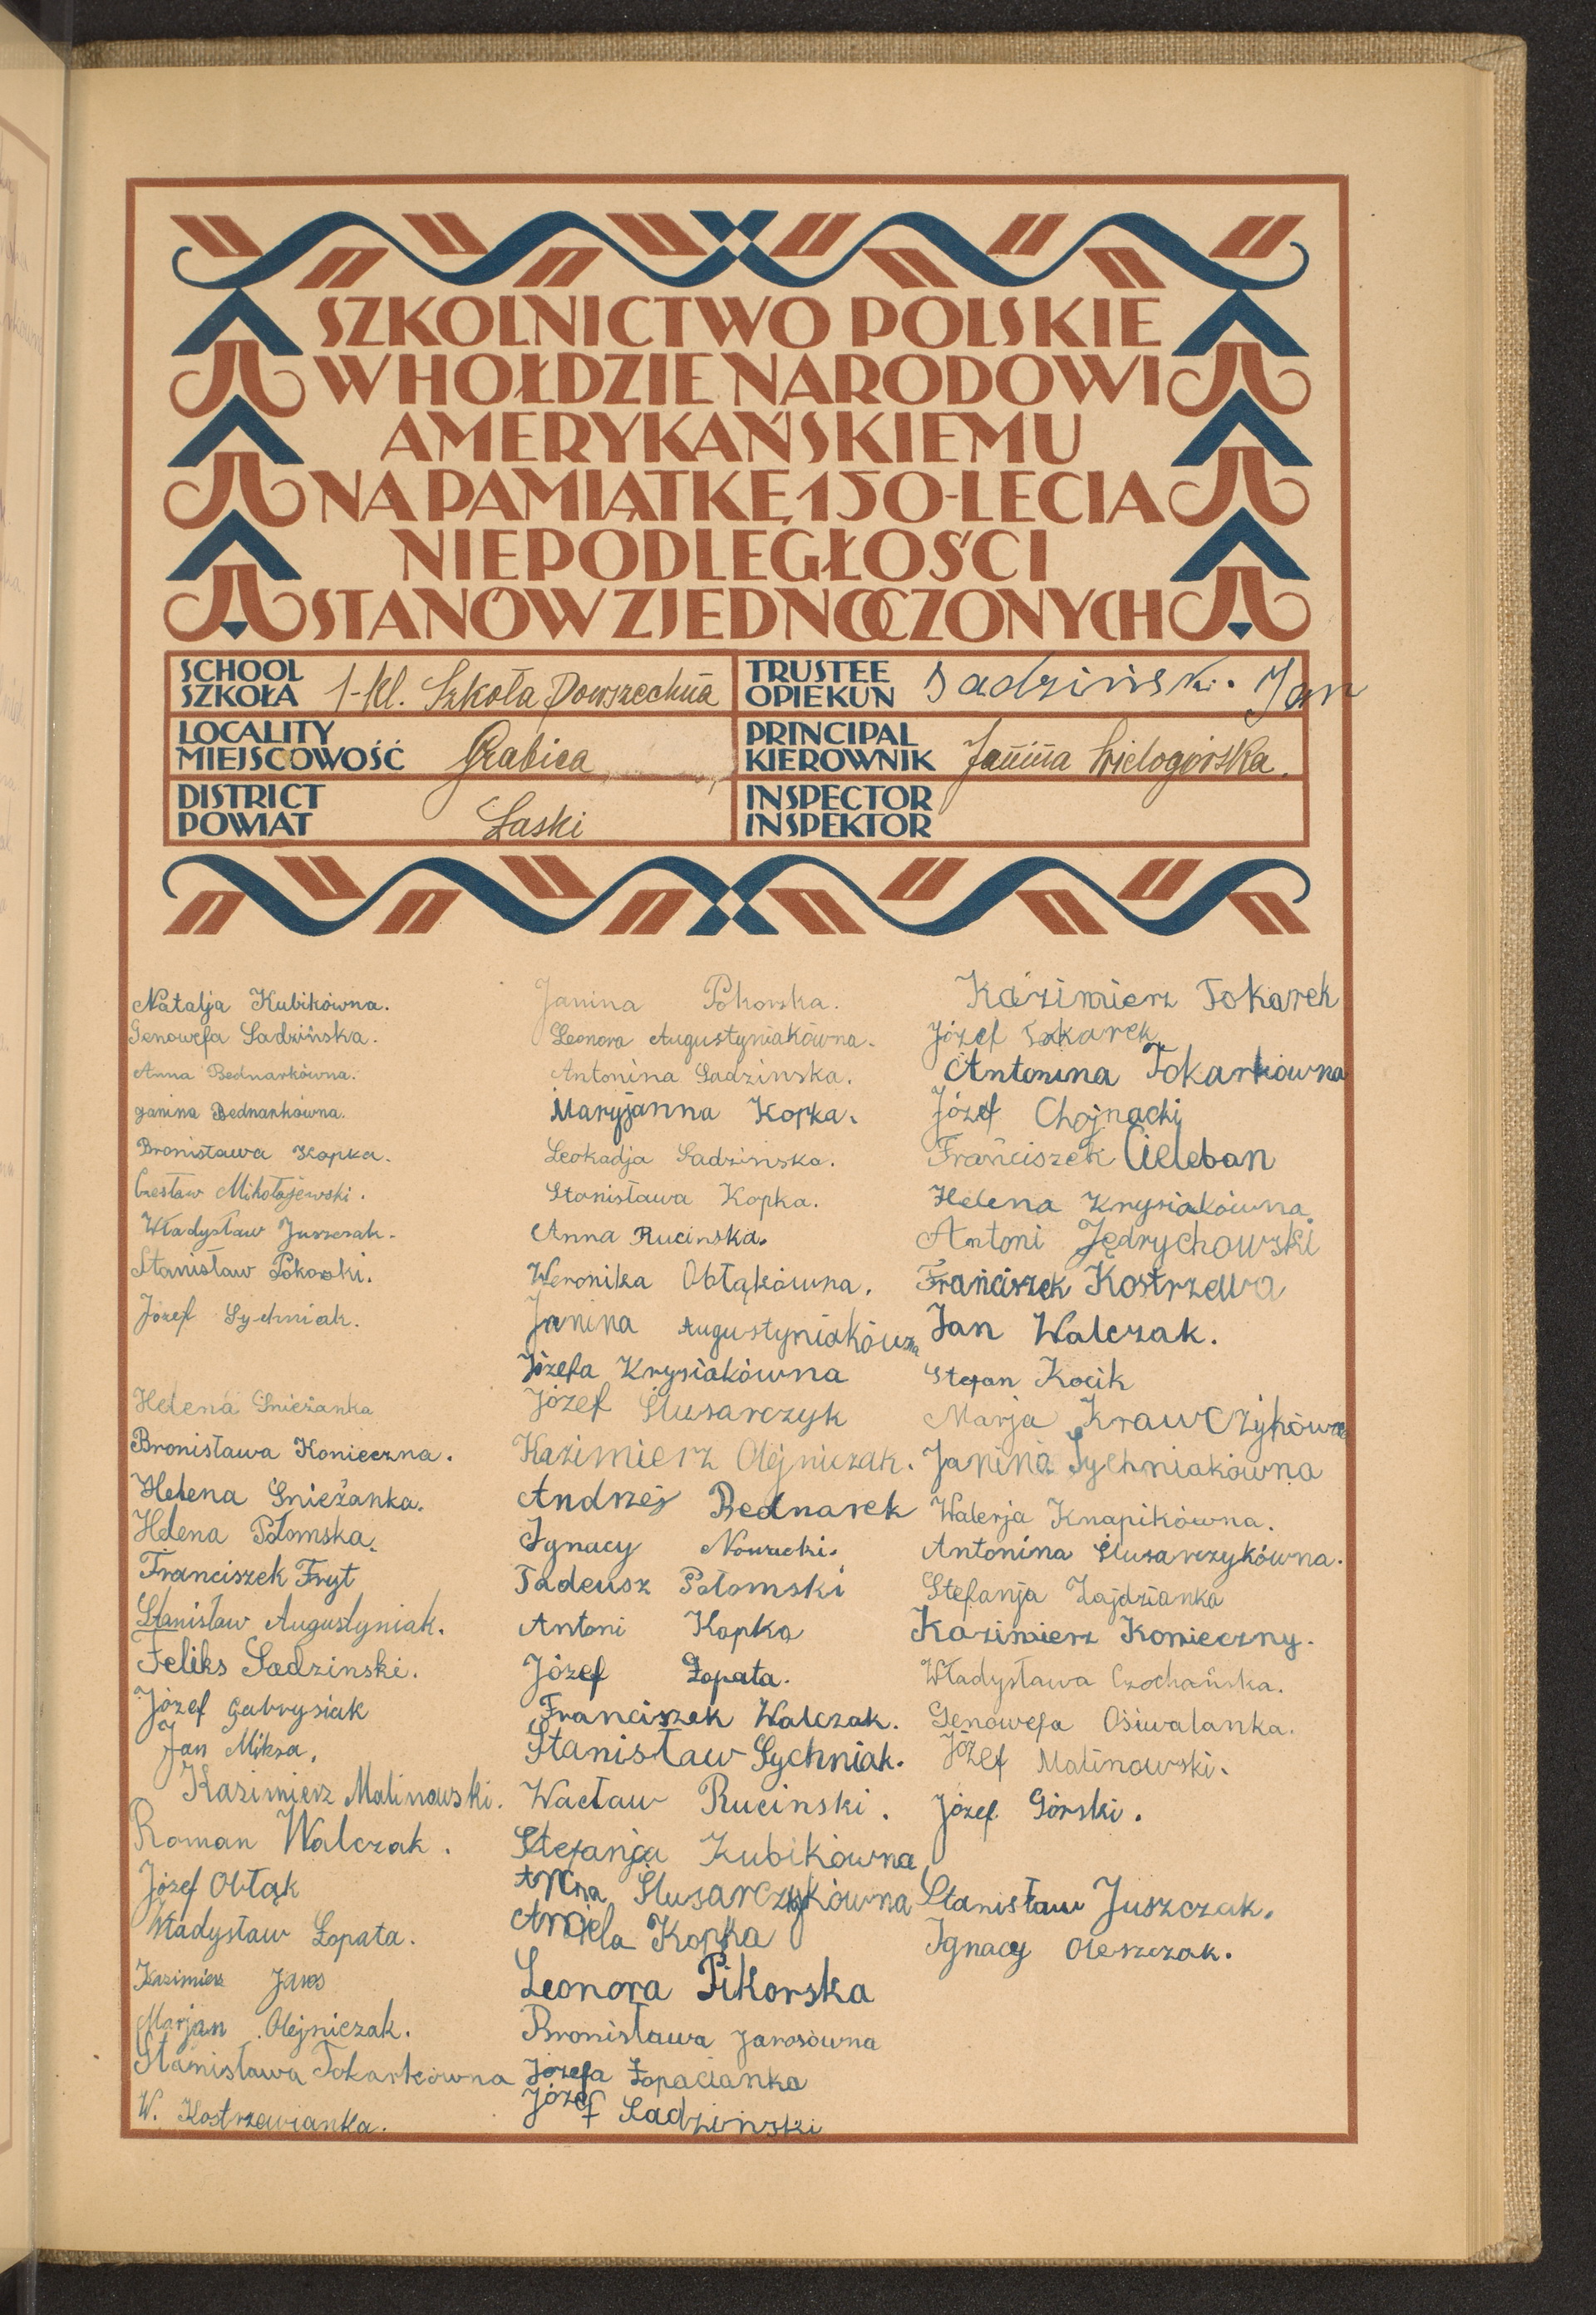 SZKOLNICTWO POLSKIE
W HOŁDZIE NARODOWI
AMERYKAŃSKIEMU
NA PAMIĄTKĘ 150-LECIA
NIEPODLEGŁOŚCI
STANÓW ZJEDNOCZONYCH
SCHOOL
SZKOŁA 1-kl. Szkoła Powszechna
TRUSTEE
OPIEKUN Sadziński. Jan
LOCALITY
MIEJSCOWOŚĆ Grabica
PRINCIPAL
KIEROWNIK Janina Wielogórska.
DISTRICT
POWIAT Łaski
INSPECTOR
INSPEKTOR
Natalja Kubikówna.
Genowefa Sadzińska.
Anna Bednarkówna.
Janina Bednarkówna.
Bronisława Kopka.
Czesław Mikołajewski.
Władysław Juszczak.
Stanisław Pokorski.
Józef Sychniak.
Helena Gnieżanka
Bronisława Konieczna.
Helena Gnieżanka.
Helena Połomska.
Franciszek Fryt
Stanisław Augustyniak.
Feliks Sadzinski.
Józef Gabrysiak
Jan Miksa.
Kazimierz Malinowski.
Roman Walczak.
Józef Obłąk
Władysław Łopata.
Kazimierz Jaros
Marjan Olejniczak.
Stanisława Tokarkówna
W. Kostrzewianka.
Janina Pokorska.
Leonora Augustyniakówna.
Antonina Sadzinska.
Maryjanna Kopka.
Leokadja Sadzinska.
Stanisława Kopka.
Anna Rucinska.
Weronika Obłąkówna.
Janina Augustyniakówna
Józefa Krysiakówna
Józef Ślusarczyk
Kazimierz Olejniczak.
Andrzej Bednarek
Ignacy Nowacki.
Tadeusz Połomski
Antoni Kopka
Józef Łopata.
Franciszek Walczak.
Stanisław Sychniak.
Wacław Rucinski.
Stefanja Kubikówna
Anna Ślusarczykówna
Aniela Kopka
Leonora Pikorska
Bronisława Jarosówna
Józefa Łopacianka
Józef Sadziński
Kazimierz Tokarek
Józef Tokarek
Antonina Tokarkówna
Józef Chojnacki
Franciszek Cieleban
Helena Krysiakówna.
Antoni Jędrychowski
Franciszek Kostrzewa
Jan Walczak.
Stefan Kocik
Marja Krawczykówna
Janina Sychniakówna
Walerja Knapikówna.
Antonina Ślusarczykówna.
Stefanja Zajdzianka
Kazimierz Konieczny.
Władysława Czochańska.
Genowefa Osiwalanka.
Józef Malinowski.
Józef Górski.
Stanisław Juszczak.
Ignacy Oleszczak.